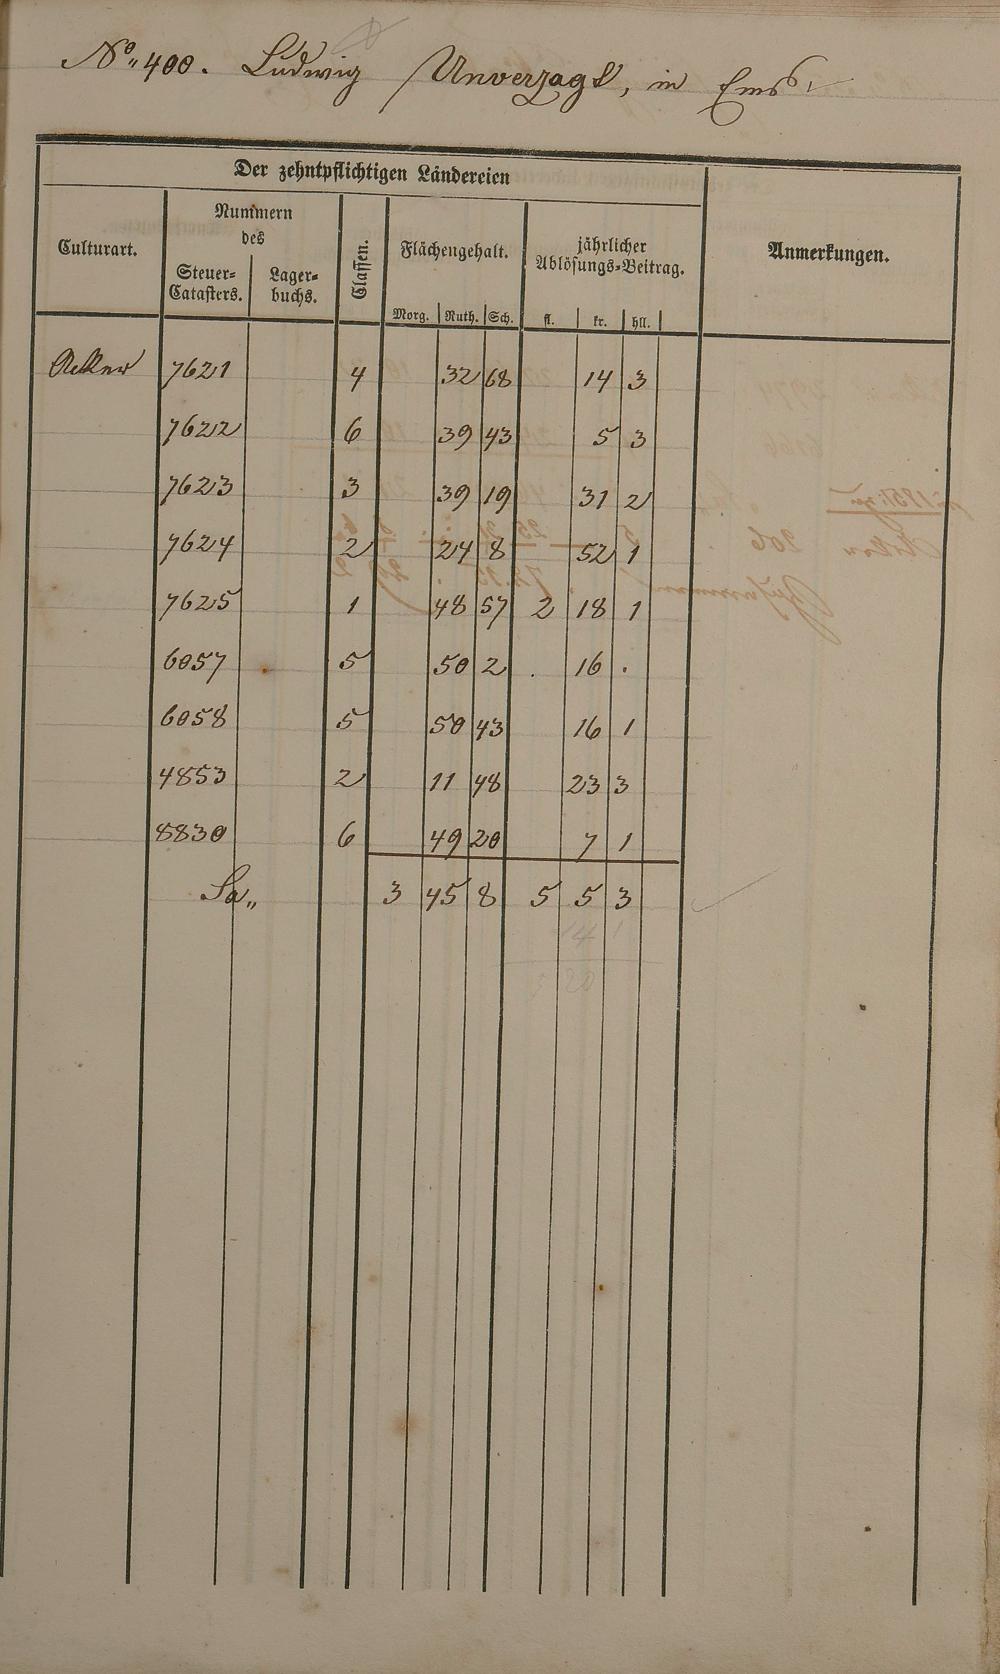 No. 400. Ludwig Unverzagt, in Ems
Der zehntpflichtigen Ländereien
Culturart.
Nummern
des
Steuer-
Catasters.
Lager-
buchs.
Classen.
Flächengehalt.
Morg. Ruth. Sch.
jährlicher
Ablösungs-Beitrag.
fl. kr. hll.
Anmerkungen.
Acker 7621 4 32 68 14 3
7622 6 39 43 5 3
7623 3 39 19 31 2
7624 2 24 8 52 1
7625 1 48 57 2 18 1
6057 5 50 2 . 16 .
6058 5 50 43 16 1
4853 2 11 48 23 3
8830 6 49 20 7 1
Sa„ 3 45 8 5 5 3
14 1
5 20